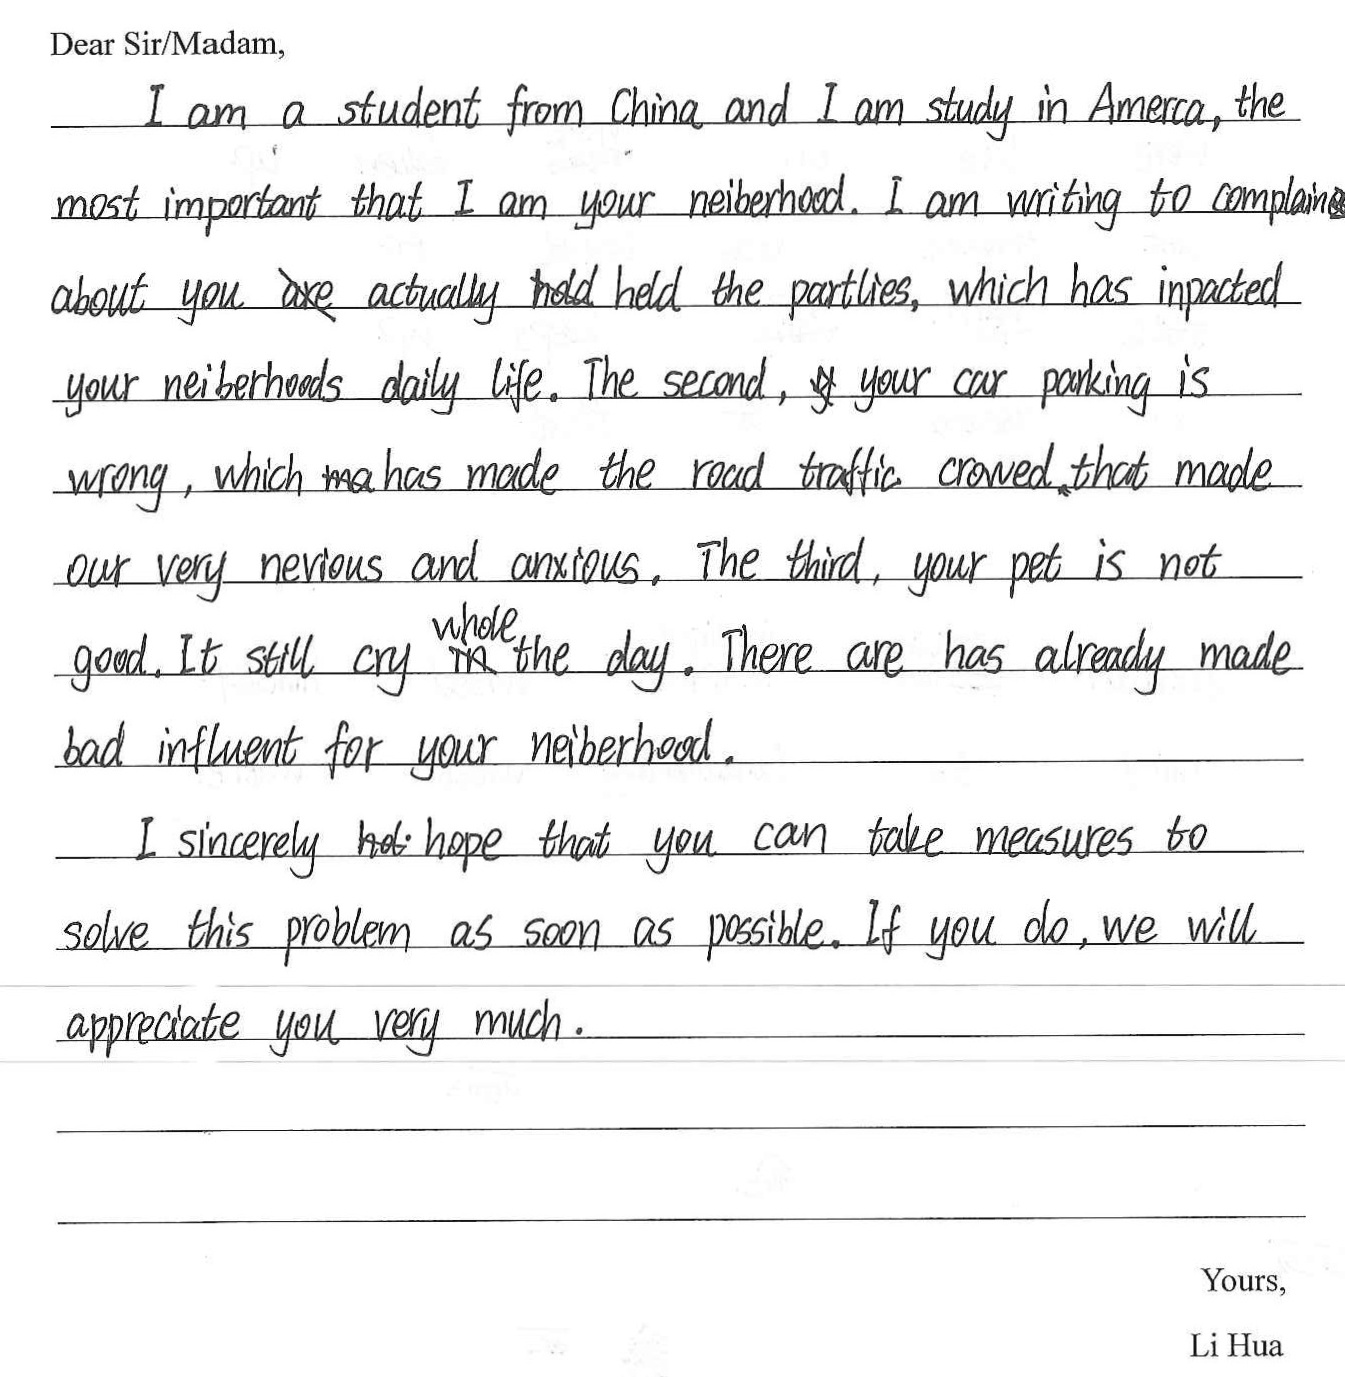 Dear Sir/Madam,
I am a student from China and I am study in Amerca, the
most important that I am your neiberhood. I am writing to complain
about you are actually hold held the partlies, which has inpacted
your neiberhoods daily life. The second, your car parking is
wrong, which ma has made the road traffic crowed, that made
our very nevious and anxious. The third, your pet is not
good. It still cry in whole the day. There are has already made
bad influent for your neiberhood.
I sincerely hot hope that you can take measures to
solve this problem as soon as possible. If you do, we will
appreciate you very much.
Yours,
Li Hua